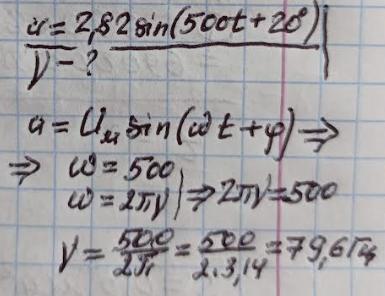 u = 2,82 sin(500t + 20°)
ν - ?
u = Uм sin(ωt + φ) ⇒
⇒ ω = 500
ω = 2πν | ⇒ 2πν = 500
ν = 500/2π = 500/2·3,14 = 79,6 Гц